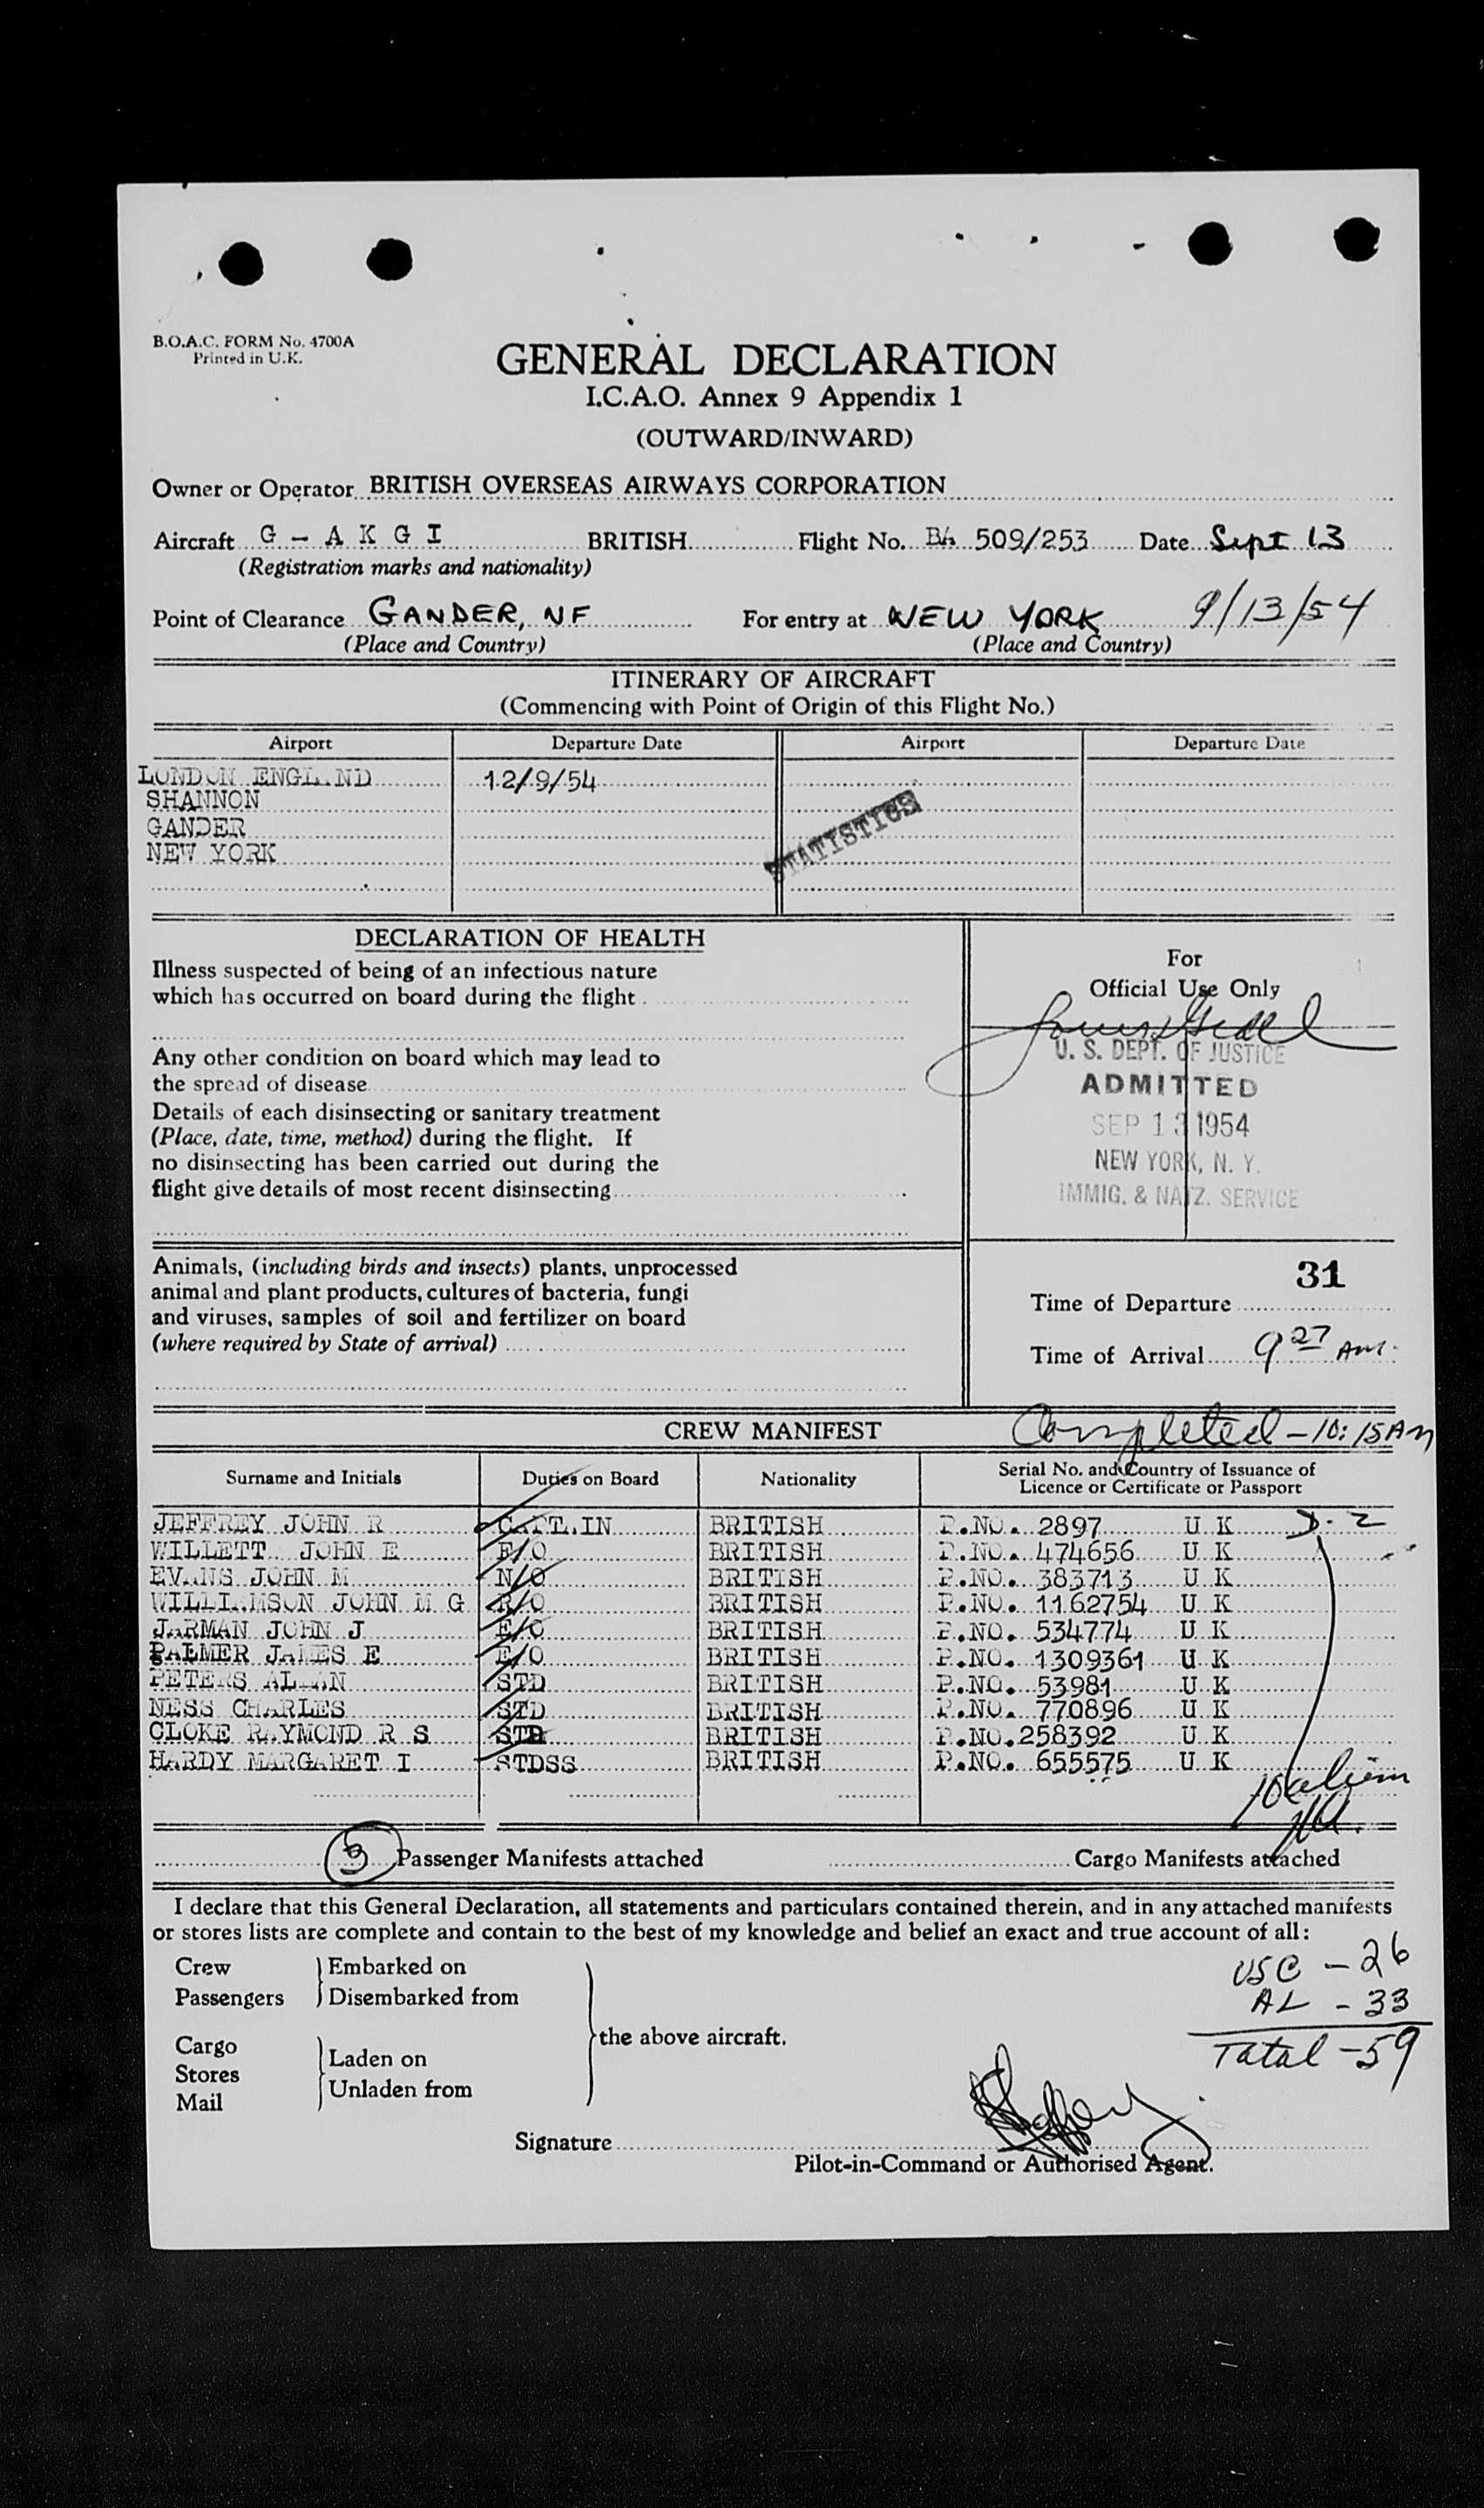 B.O.A.C. FORM No. 4700A
Printed in U.K.
GENERAL DECLARATION
I.C.A.O. Annex 9 Appendix 1
(OUTWARD/INWARD)
Owner or Operator BRITISH OVERSEAS AIRWAYS CORPORATION
Aircraft G - A K G I BRITISH Flight No. BA 509/253 Date Sept 13
(Registration marks and nationality)
Point of Clearance GANDER, NF For entry at NEW YORK 9/13/54
(Place and Country) (Place and Country)
ITINERARY OF AIRCRAFT
(Commencing with Point of Origin of this Flight No.)
Airport Departure Date Airport Departure Date
LONDON ENGLAND 12/9/54
SHANNON
GANDER
NEW YORK
STATISTICS
DECLARATION OF HEALTH
Illness suspected of being of an infectious nature
which has occurred on board during the flight
Any other condition on board which may lead to
the spread of disease
Details of each disinsecting or sanitary treatment
(Place, date, time, method) during the flight. If
no disinsecting has been carried out during the
flight give details of most recent disinsecting
For
Official Use Only
U. S. DEPT. OF JUSTICE
ADMITTED
SEP 13 1954
NEW YORK, N. Y.
IMMIG. & NATZ. SERVICE
Animals, (including birds and insects) plants, unprocessed
animal and plant products, cultures of bacteria, fungi
and viruses, samples of soil and fertilizer on board
(where required by State of arrival)
31
Time of Departure
Time of Arrival 9 27 AM.
CREW MANIFEST Completed - 10:15 AM
Surname and Initials Duties on Board Nationality Serial No. and Country of Issuance of
Licence or Certificate or Passport
JEFFREY JOHN R CAPT.IN BRITISH P.NO. 2897 U K D-2
WILLETT JOHN E F/O BRITISH P.NO. 474656 U K
EVANS JOHN M N/O BRITISH P.NO. 383713 U K
WILLIAMSON JOHN M G R/O BRITISH P.NO. 1162754 U K
JARMAN JOHN J E/O BRITISH P.NO. 534774 U K
PALMER JAMES E E/O BRITISH P.NO. 1309361 U K
PETERS ALLAN STD BRITISH P.NO. 53981 U K
NESS CHARLES STD BRITISH P.NO. 770896 U K
CLOKE RAYMOND R S STD BRITISH P.NO.258392 U K
HARDY MARGARET I STDSS BRITISH P.NO. 655575 U K
10 alien
3 Passenger Manifests attached Cargo Manifests attached
I declare that this General Declaration, all statements and particulars contained therein, and in any attached manifests
or stores lists are complete and contain to the best of my knowledge and belief an exact and true account of all:
Crew Embarked on
Passengers Disembarked from
the above aircraft.
Cargo
Stores Laden on
Mail Unladen from
USC - 26
AL - 33
Total - 59
Signature
Pilot-in-Command or Authorised Agent.